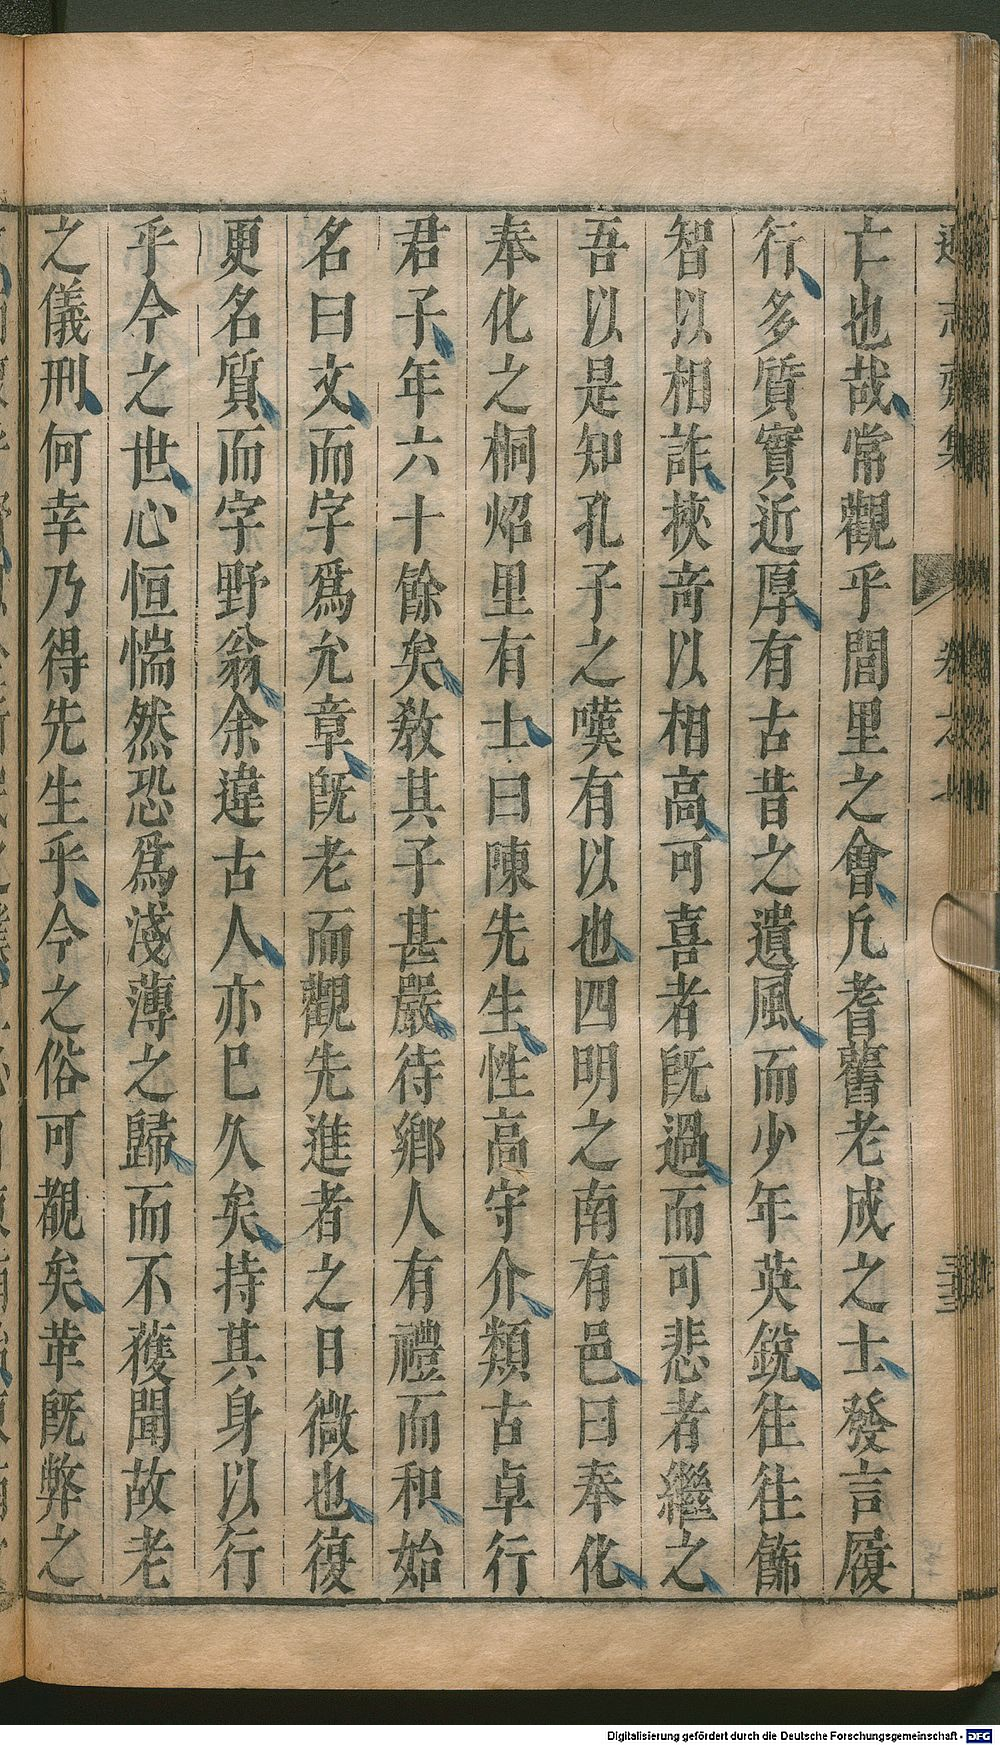 亡也哉常觀乎閭里之會凡耆舊老成之士發言履
行多質實近厚有古昔之遺風而少年英銳往往飾
智以相詐挾竒以相高可喜者旣過而可悲者繼之
吾以是知孔子之嘆有以也四明之南有邑曰奉化
奉化之桐炤里有士曰陳先生性高守介類古卓行
君子年六十餘矣敎其子甚嚴待鄉人有禮而和始
名曰文而字爲允章旣老而觀先進者之日微也復
更名質而字野翁余違古人亦巳久矣持其身以行
乎今之世心恒惴然恐爲淺薄之歸而不獲聞故老
之儀刑何幸乃得先生乎今之俗可覩矣革旣弊之
Digitalisierung gefördert durch die Deutsche Forschungsgemeinschaft - DFG